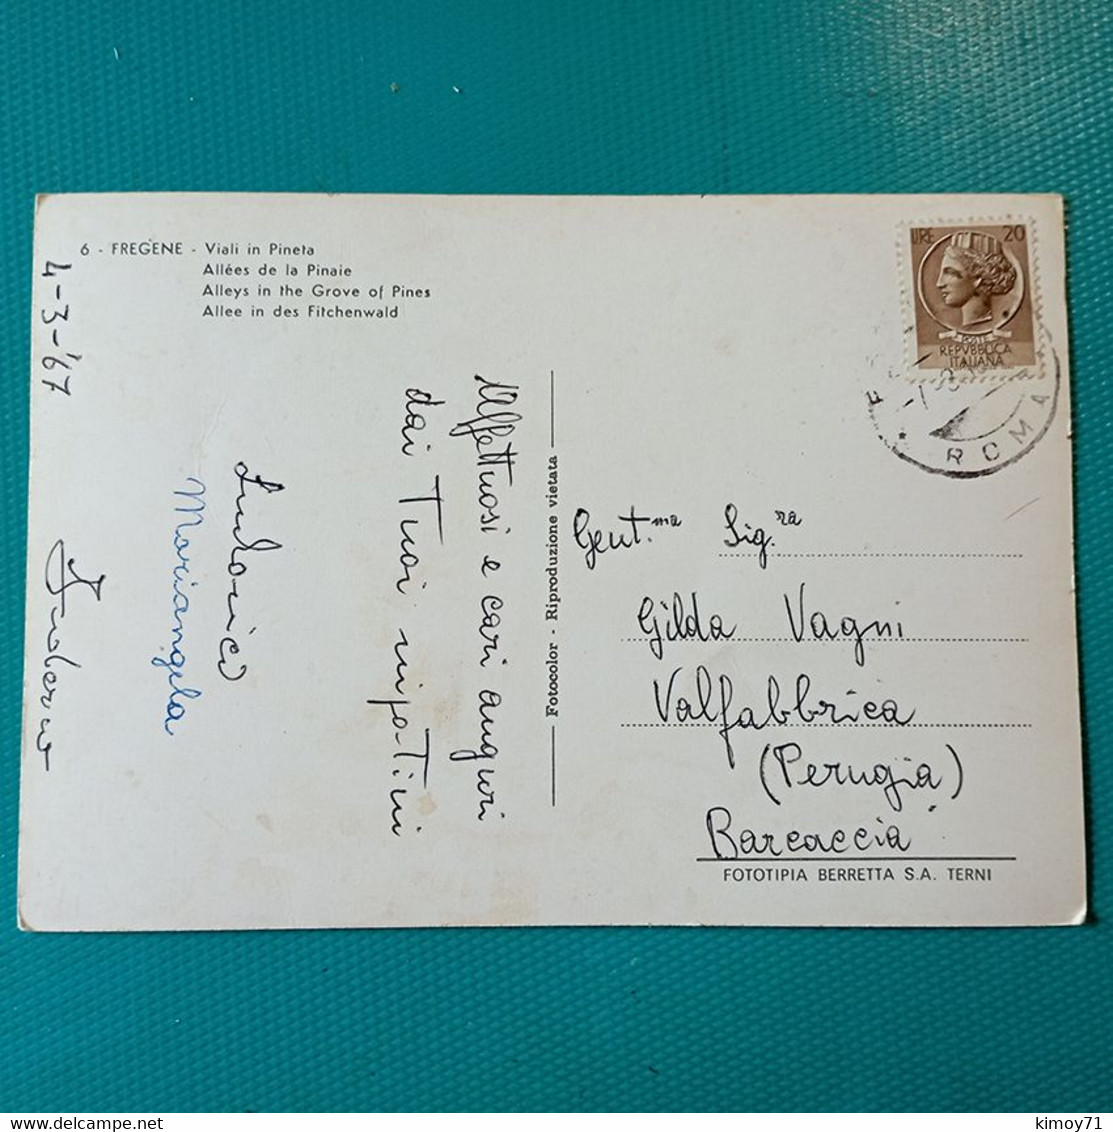 6 - FREGENE - Viali in Pineta
Allées de la Pinaie
Alleys in the Grove of Pines
Allee in des Fitchenwald
4-3-'67
Affettuosi e cari auguri
dai Tuoi nipotini
Ludovico
Mariangela
Fotocolor - Riproduzione vietata
LIRE 20
POSTE
REPVBBLICA
ITALIANA
ROMA
Gent.ma Sig.ra
Gilda Vagni
Valfabbrica
(Perugia)
Barcaccia
FOTOTIPIA BERRETTA S.A. TERNI
kimoy71